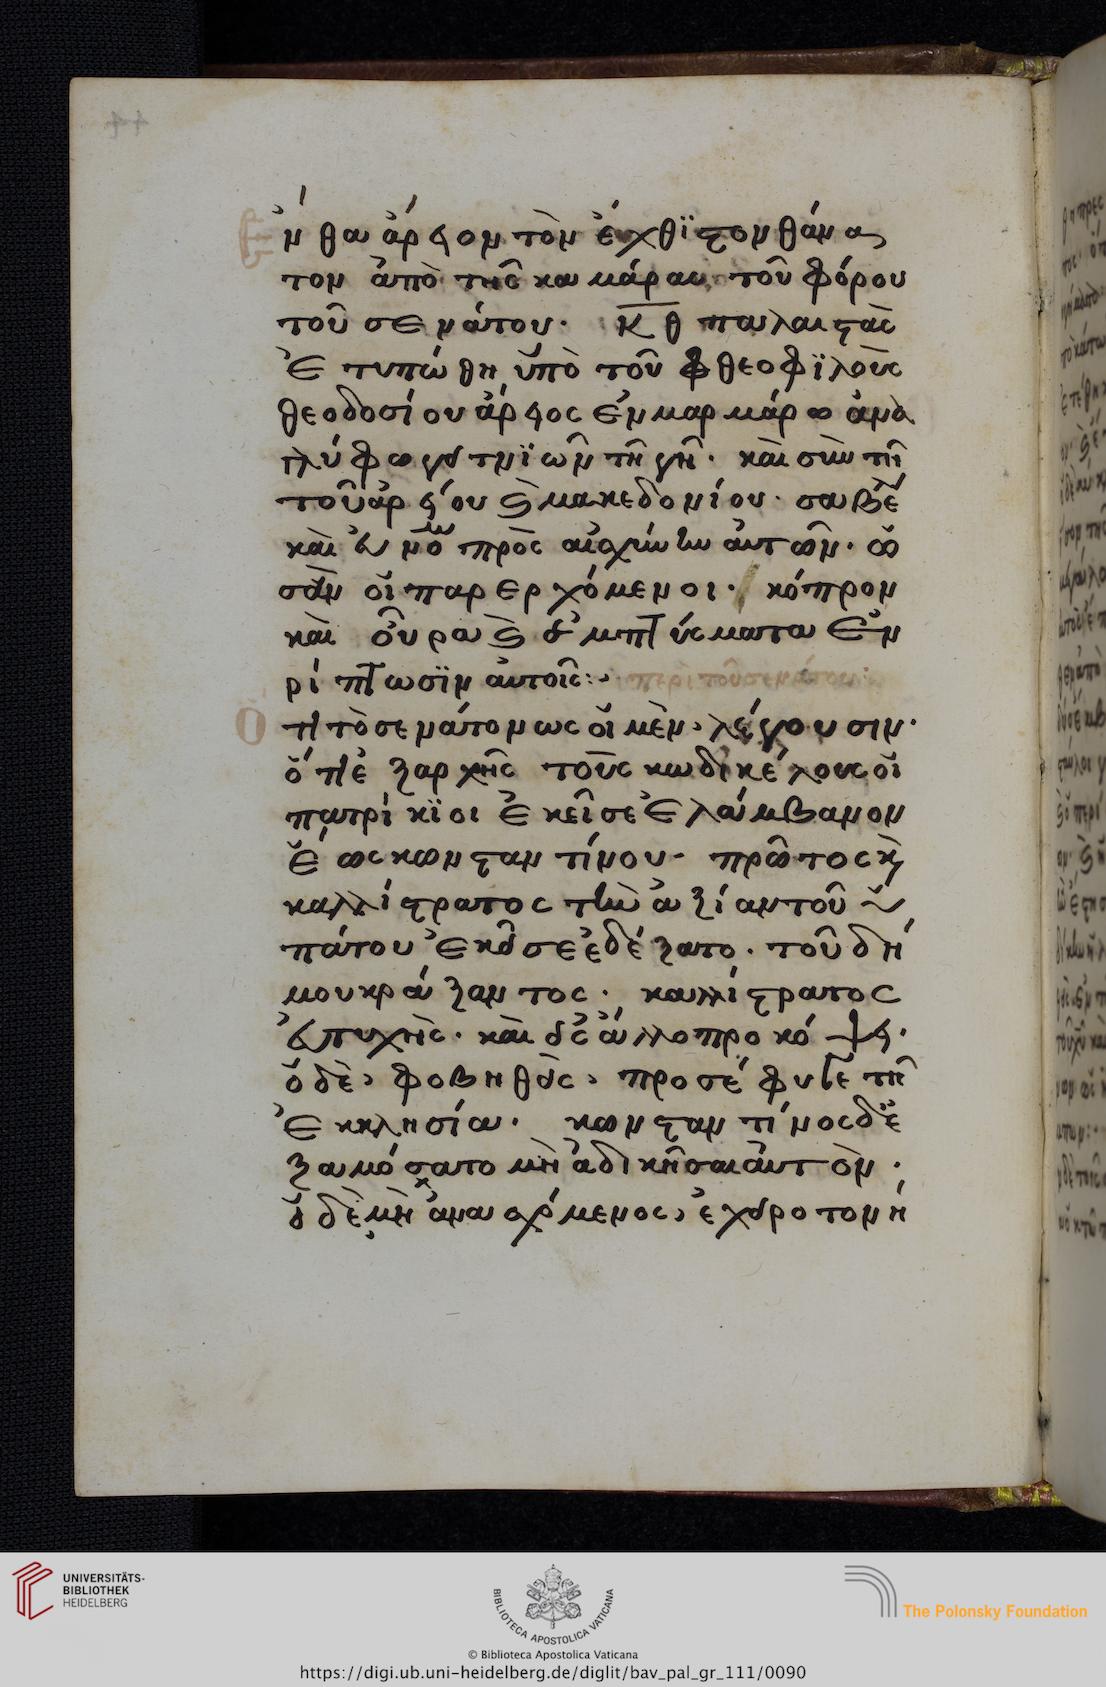 ν θα ἄρειον τὸν ἔχθϊστον θάνα
τον ἀπὸ τῆς καμάρας τοῦ φόρου
τοῦ σενάτου. κθ παλαιστὰς
Ἐτυπώθη ὑπὸ τοῦ θεοφϊλοῦς
θεοδοσίου ἄρειος ἐν μαρμάρω ἀνα
γλύφω γειτνϊῶν τῆ γῆ. καὶ σὺν τῆ
τοῦ ἀρείου μακεδονίου. σαβέ
καὶ πρὸς αἰσχύνην ἀυτῶν.
σὰν οἱ παρερχόμενοι. κόπρον
καὶ οὖρα ἐμπτύσματα ἐν
ρίπτωσϊν ἀυτοῖς: περὶ τοῦ σενάτου:
Ὅτι τὸ σενάτον ὡς οἱ μὲν λέγουσιν.
ὅτι ἐξαρχῆς τοὺς κωδικέλους οἱ
πατρίκϊοι Ἐκεῖσε Ἐλάμβανον
Ἕως κωνσταντίνου πρῶτος
καλλίστρατος τὴν ἀξίαν τοῦ ὑ
πάτου Ἐκεῖσε ἐδέξατο. τοῦ δή
μου κράξαντος. καλλίστρατος
εὐτυχὴς. καὶ εἰς ἄλλο προκόψει.
ὁ δὲ φοβηθεὶς προσέφυγε τῆ
Ἐκκλησία. κωνσταντίνος δὲ ἐ
ξαμόσατο μὴ ἀδικῆσαι ἀυτὸν.
ὁ δὲ μὴ ἀνασχόμενος ἐχειροτονή
UNIVERSITÄTS-
BIBLIOTHEK
HEIDELBERG
BIBLIOTECA APOSTOLICA VATICANA
The Polonsky Foundation
© Biblioteca Apostolica Vaticana
https://digi.ub.uni-heidelberg.de/diglit/bav_pal_gr_111/0090